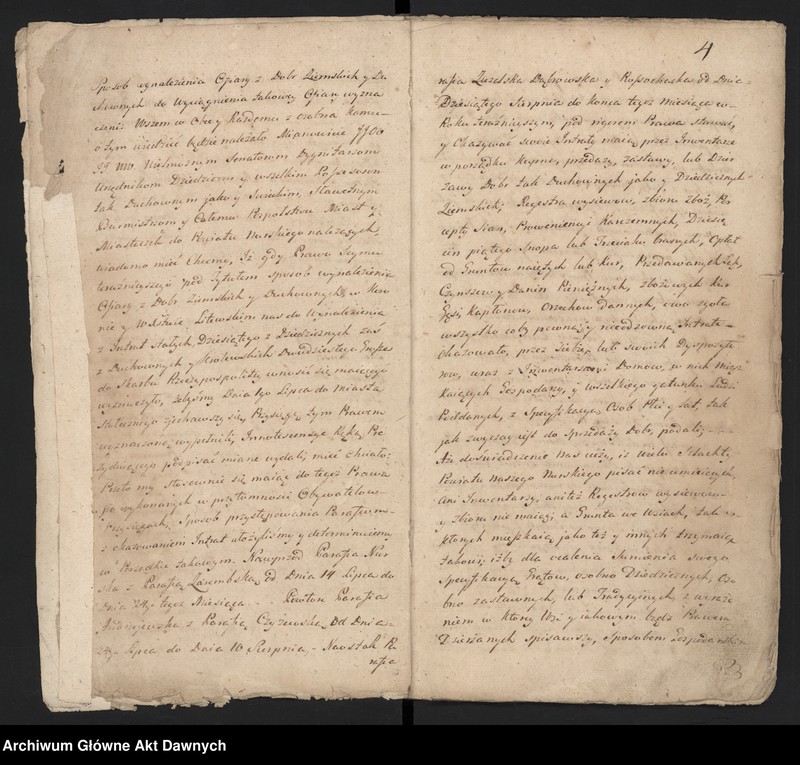 Sposob wynalezienia Ofiary z Dobr Ziemskich y Du
chownych do Wyciągnienia takowey Ofiary wyzna
czeni: Wszem w Obec y Każdemu z osobna komu
o tym wiedzieć będzie należało Mianowicie JJOO
JJ WW. Wielmożnym Senatorom Dygnitarzom
Urzędnikom Dziedzicom y wszelkim Possessorom
tak Duchownym jako y Swieckim, Sławetnym
Burmistrzom y Całemu Pospolstwu Miast y
Miasteczek do Powiatu Nurskiego należących
wiadomo mieć chcemy, Iż gdy Prawo Seymu
teraznieyszego pod tytułem sposob wynalezienia
Ofiary z Dobr Ziemskich y Duchownych w Koro
nie y W. Xstwie Litewskim nas do Wynalezienia
z Intrat Stałych, Dziesiątego z Dziedzicznych zaś
z Duchownych y Krolewskich Dwudziestego Grosza
do Skarbu Rzeczypospolitey wnosić się maiącego
wyznaczyło, żebyśmy Dnia 1go Lipca do Miasta
Stołecznego ziechawszy się, Przysięgę tym Prawem
wyznaczoną wypełnili, Innotescencye Ręką Pre
zyduiącego podpisać miane wydali, mieć chciało;
Przeto my stosownie się maiąc do tegoż Prawa
po wykonanych w przytomności Obywatelow
Przysięgach, Sposob przystępowania Parafiow
z okazowaniem Intrat ułożyliśmy y determinuiemy
w Porządku takowym. Nayprzod Parafia Nur
ska z Parafią Zarembską od Dnia 14 Lipca do
Dnia 24go tegoż Miesiąca Powtore Parafia
Andrzejewska z Parafią Czyżewską Od Dnia
24go Lipca do Dnia 10 Sierpnia,- Naostatek Pa
rafia
4
rafia Zuzelska Dąbrowska y Rosochacka od Dnia
Dziesiątego Sierpnia do końca tegoż miesiąca w
Roku teraznieyszym, pod rygorem Prawa stawać,
y Okazywać swoie Intraty maią przez Inwentarze
w porządku Kupna, przedaży, zastawy, lub Dzier
żawy Dobr tak Duchownych jako y Dziedzicznych
Ziemskich; Regestra wysiewow, zbioru zboż, Ro
czych Sian, Prowenieniencyi Karczemnych, Dziesię
cin piątego Snopa lub Trzeciaku branych, Opłat
od Gruntow naiętych lub Kur, Przedawanych Łąk,
Czynszow y Danin Pieniężnych, zbożowych Kur
Gęsi, Kapłonow, Orzechow dannych, owo zgoła
wszystko coby pewną y nieodzowną Intratę
Okazowało, przez siebie lub swoich Dyspozyto
row, wraz z Inwentarzem Domow, w nich miesz
kaiących Gospodarzy, y wszelkiego gatunku Ludzi
Poddanych, z Specyfikacyą Osob Płci y lat, tak
jak zwyczay iest do Sprzedaży Dobr, podali;
Aże doświadczenie nas uczy, iż wielu Szlachty
Powiatu Naszego Nurskiego pisać nie umieiących,
ani Inwentarzy, aniteż Regestrow wysiewow
y zbioru nie maiąc, a Grunta we Wsiach, tak w
ktorych mieszkaią jako też y innych trzymaią
takowi, iżby dla ocalenia Sumienia swego
Specyfikacyą Gruntow, osobno Dziedzicznych, Oso
bno zastawnych, lub Tradycyinych z wyraże
niem w ktorey Wsi y iakowym będź Prawem
Dzierżanych spisawszy, sposobem Gospodarskim